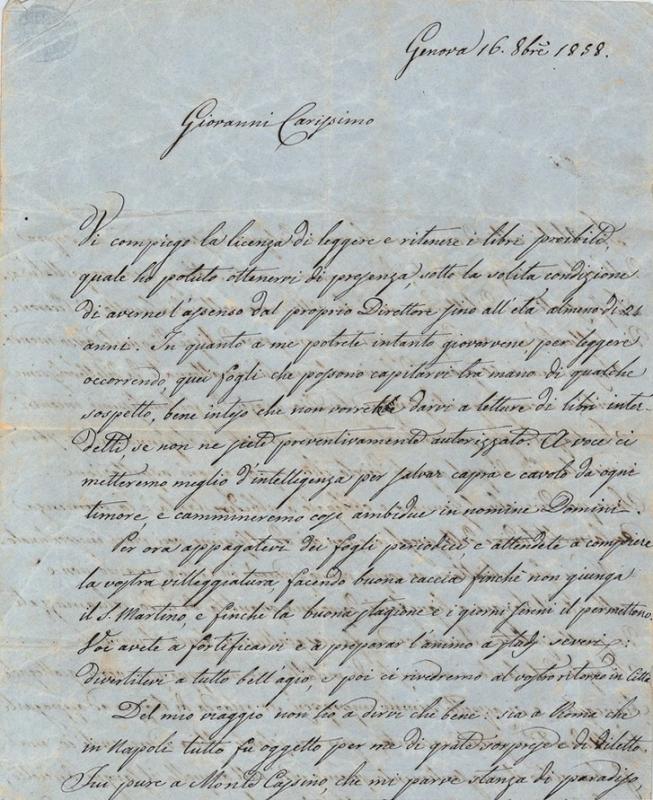 Genova 16. 8bre 1858.
Giovanni Carissimo
Vi compiego la licenza di leggere e ritenere i libri proibiti,
quale ho potuto ottenervi di presenza, sotto la solita condizione
di averne l'assenso dal proprio Direttore sino all'età almeno di 24
anni. In quanto a me potrete intanto giovarvene per leggere
occorrendo, quei fogli che possono capitarvi tra mano di qualche
sospetto, bene inteso che non vorrete darvi a letture di libri inter-
detti se non ne siete preventivamente autorizzato. A voce ci
metteremo meglio d'intelligenza per salvar capra e cavoli da ogni
timore, e cammineremo così ambidue in nomine Domini.
Per ora appagatevi dei fogli periodici, e attendete a compiere
la vostra villeggiatura, facendo buona caccia finchè non giunga
il S. Martino, e finchè la buona stagione e i giorni sereni il permettono.
Voi avete a fortificarvi e a preparar l'animo a studj severi:
divertitevi a tutto bell'agio, e poi ci rivedremo al vostro ritorno in Città.
Del mio viaggio non ho a dirvi che bene: sia a Roma che
in Napoli tutto fu oggetto per me di grate sorprese e di diletto.
Fui pure a Monte Cassino, che mi parve stanza di paradiso,